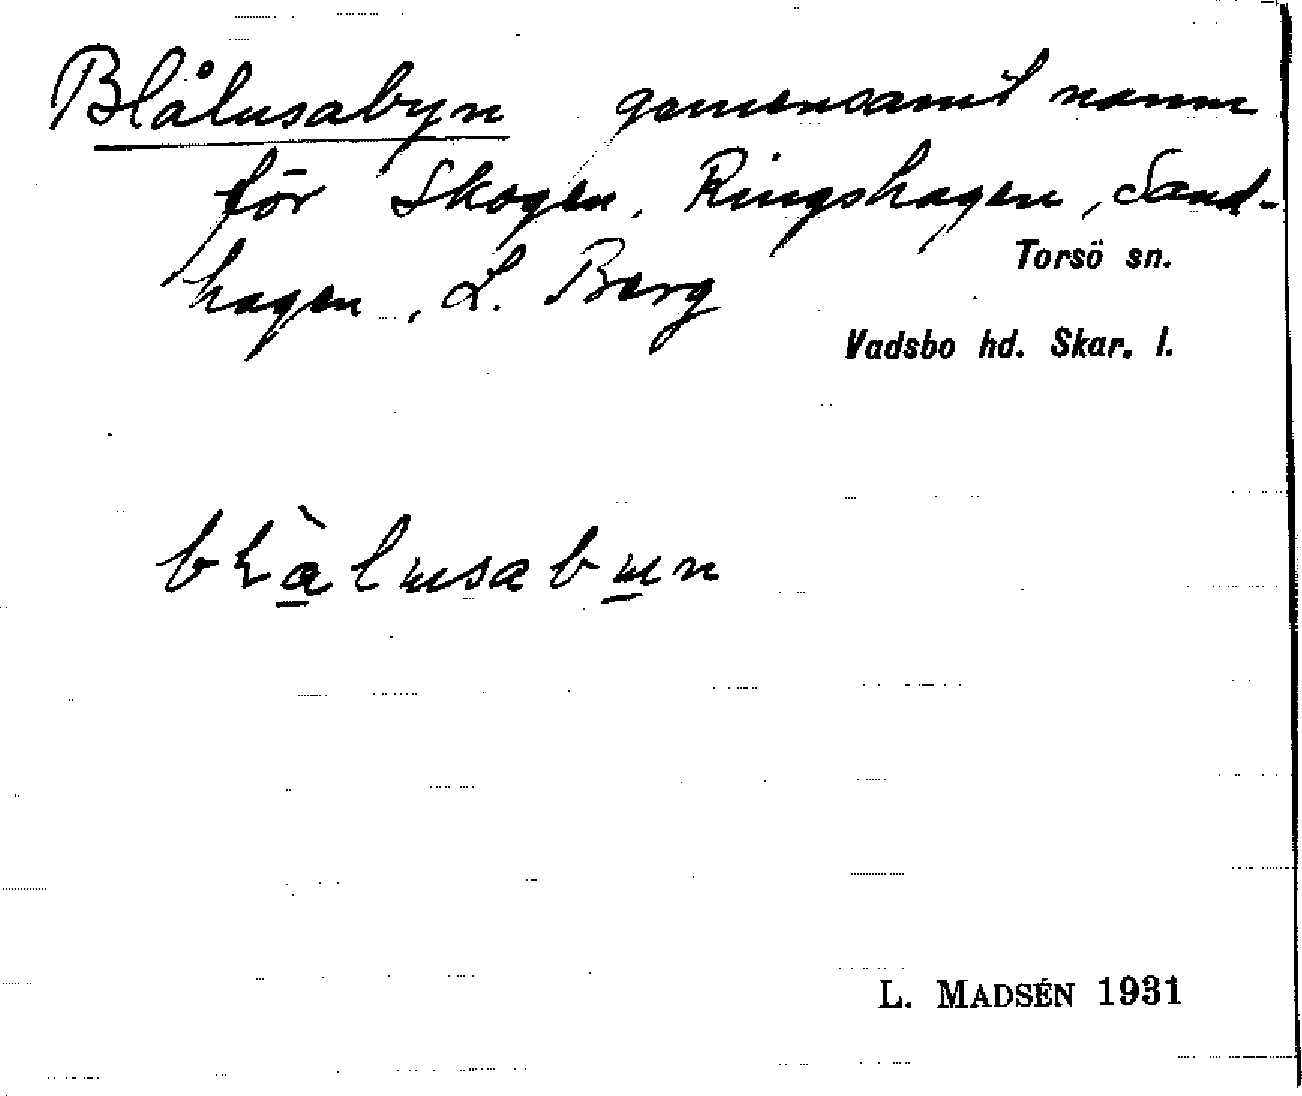 Blålusabyn gemensamt namn
för Skogen, Ringshagen, Sand-
hagen, L. Berg
Torsö sn.
Vadsbo hd. Skar. l.
L. MADSÉN 1931